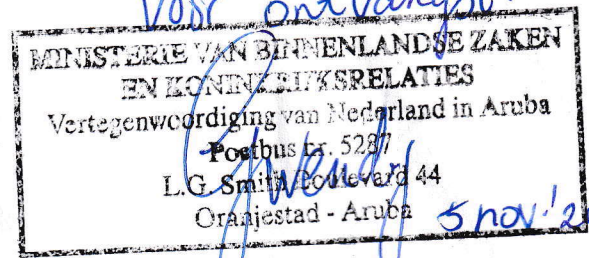 voor ontvangst
MINISTERIE VAN BINNENLANDSE ZAKEN
EN KONINKRIJKSRELATIES
Vertegenwoordiging van Nederland in Aruba
Postbus nr. 5287
L.G. Smith Boulevard 44
Oranjestad - Aruba
Gwendy
5 nov.'2